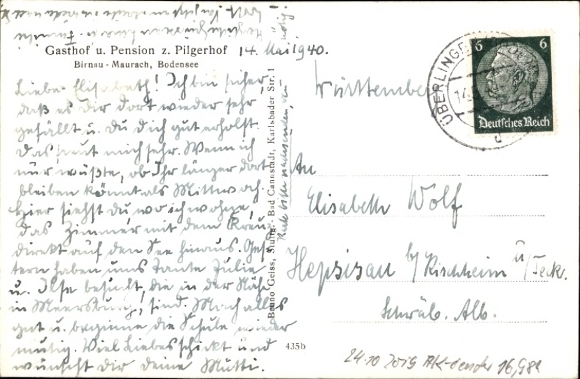 Gasthof u. Pension z. Pilgerhof
Birnau - Maurach, Bodensee
14. Mai 1940.
Liebe Elisabeth! Ich bin sicher,
daß es Dir dort wieder sehr
gefällt u. Du Dich gut erholst.
Das freut mich sehr. Wenn ich
nur wüßte, ob Ihr länger dort
bleiben könnt als Mittwoch.
Hier siehst Du wo ich wohne,
das Zimmer mit dem Kreuz
direkt auf den See hinaus. Ges-
tern haben uns Tante Julie
u. Ilse besucht, die in der Nähe
in Meersburg sind. Mach alles
gut u. beginne die Schule wieder
mutig. Viel Liebes schickt und
wünscht Dir deine Mutti.
Bruno Geiss, Stuttg.-Bad Cannstatt, Karlsbader Str. 1
435b
ÜBERLINGEN
6 6
Deutsches Reich
Württemberg
An
Elisabeth Wolf
Hepsisau bei Kirchheim u/Teck.
Schwäb. Alb.
24.10 2019 AK-